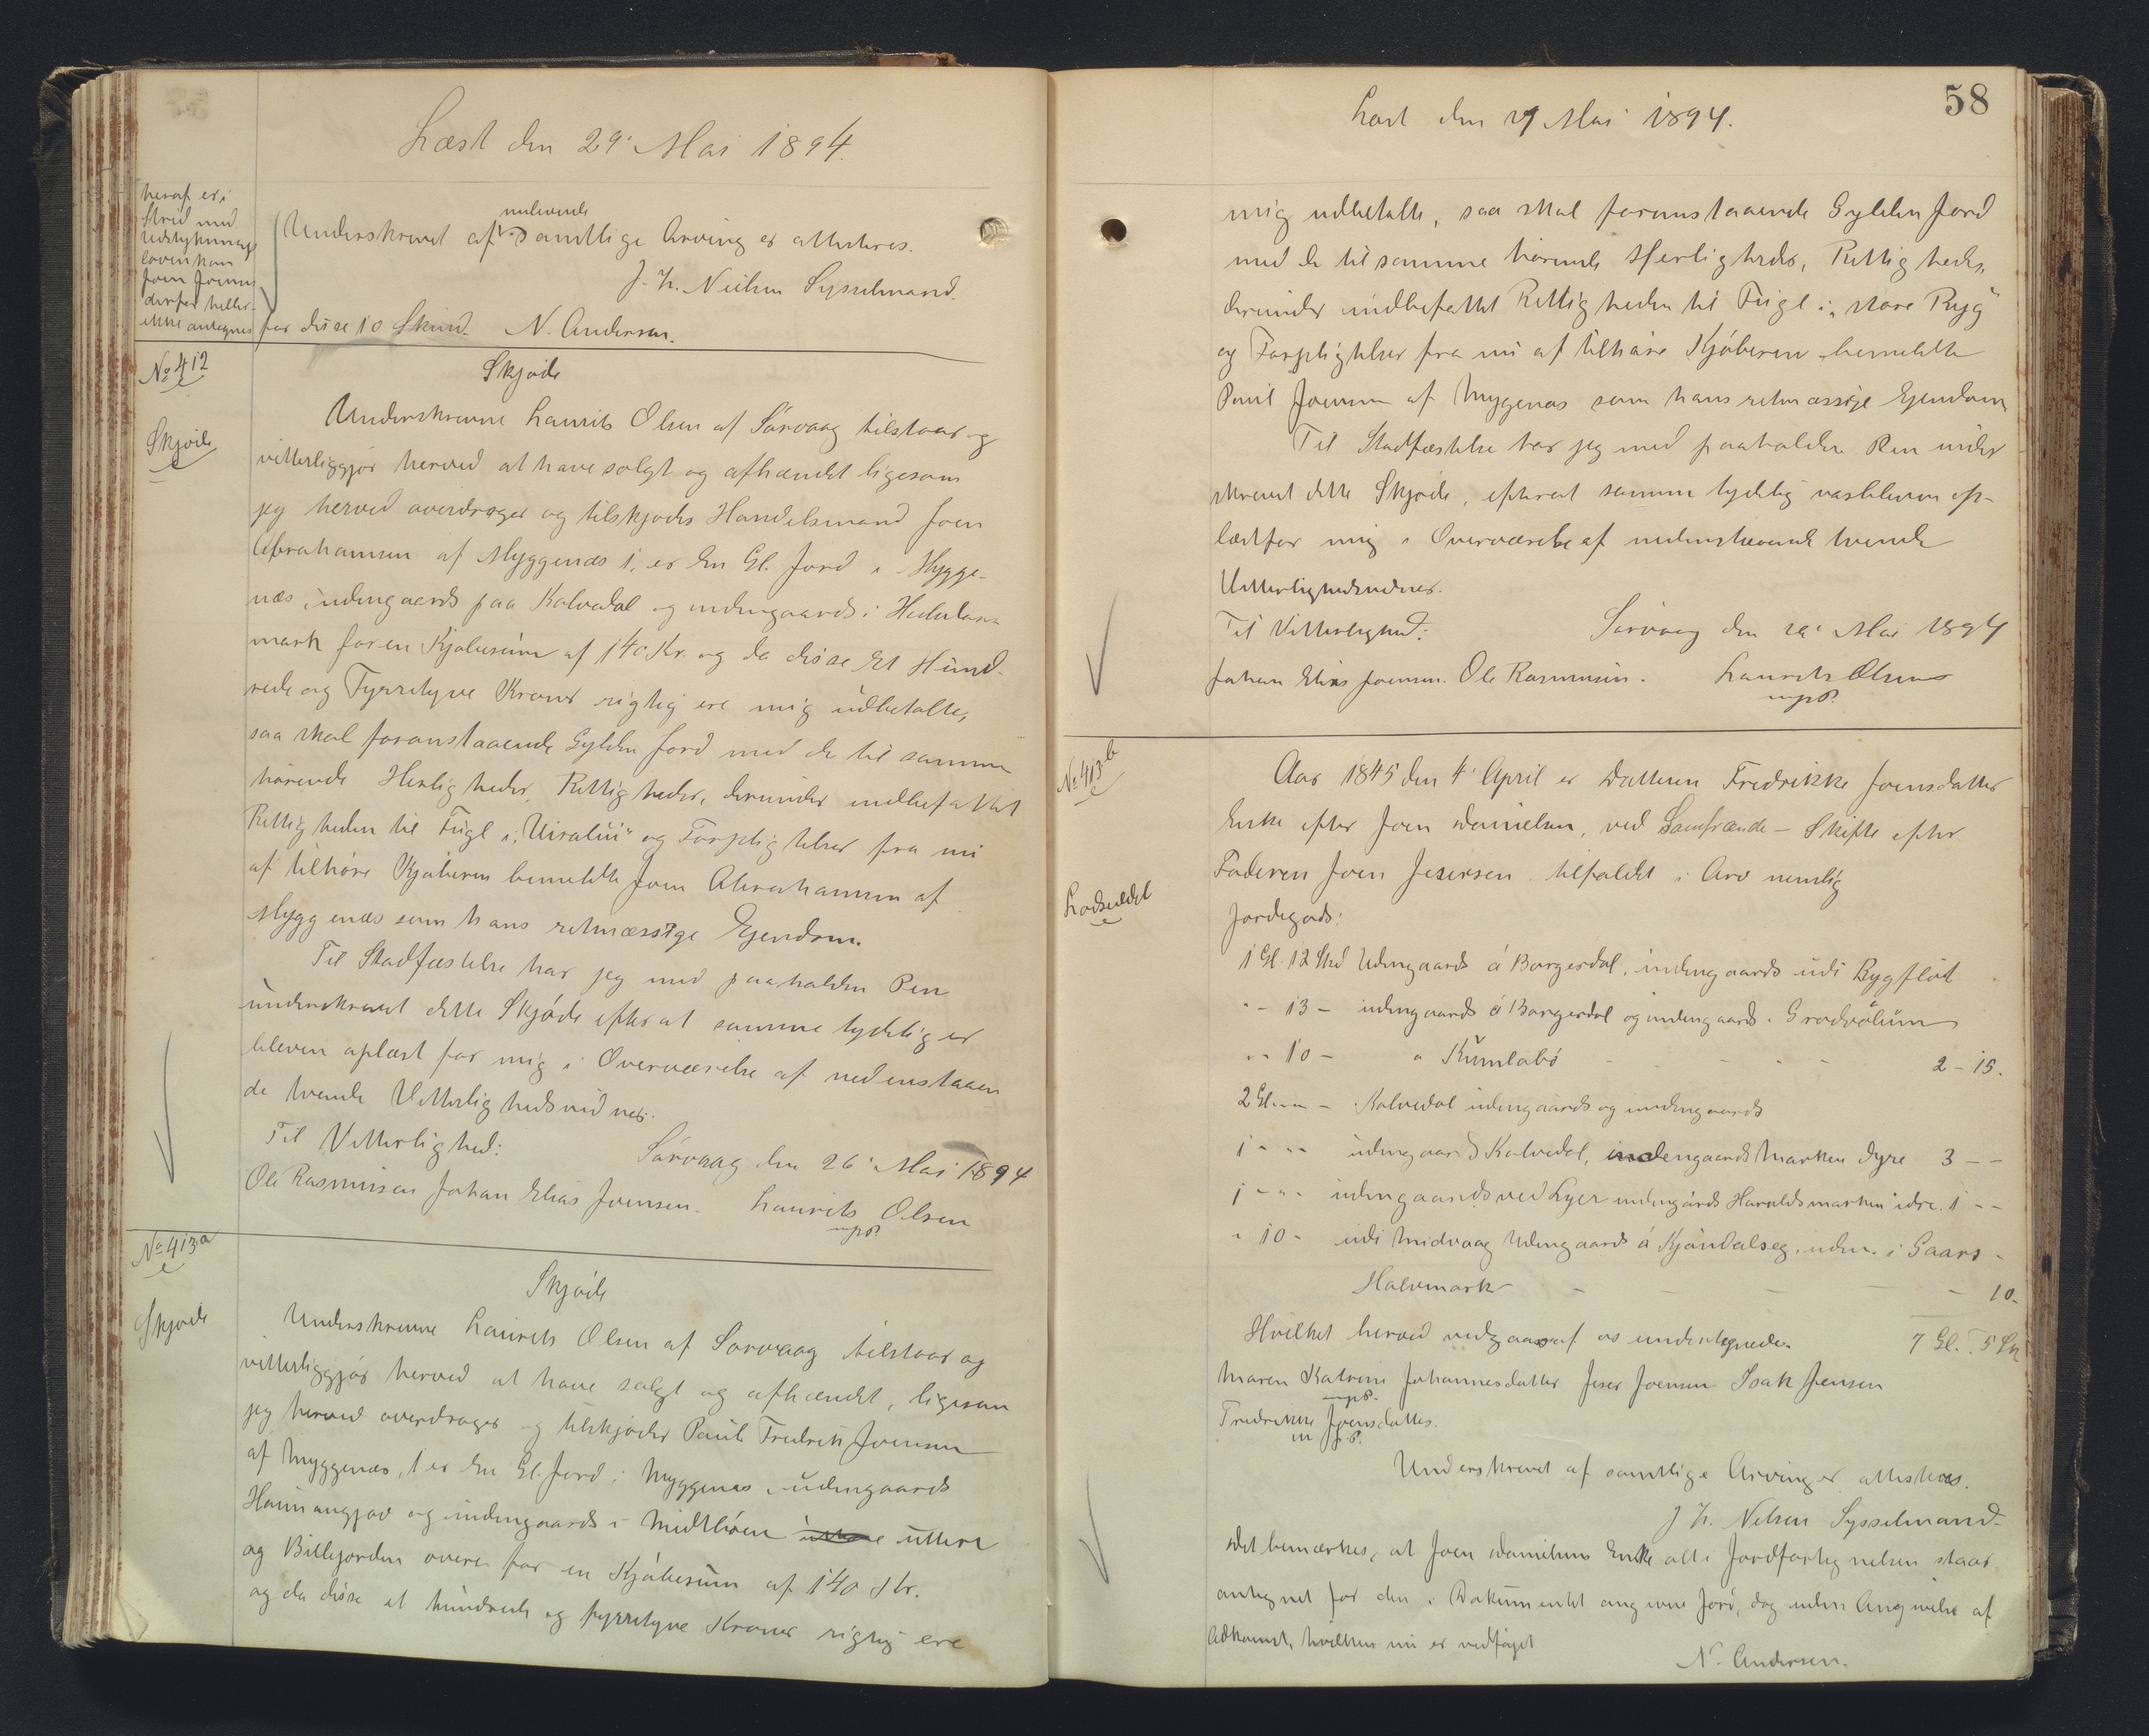 Læst den 29' Mai 1894.
heraf er i
strid med
Udstyknings
loven kan
Joen Joensen
derfor heller
ikke antegnes
nulevende
Underskrevet af samtlige Arvinger attesteres.
J. H. Nielsen Sysselmand.
for disse 10 Skind. N. Andersen.
No 412
Skjøde
Skjøde
Underskrevne Laurits Olsen af Sørvaag tilstaar og
vitterliggjør herved at have solgt og afhændet ligesom
jeg herved overdrager og tilskjøder Handelsmand Joen
Abrahamsen af Myggenæs 1, er En Gl. Jord i Mygge-
næs, udengaards paa Kalvedal og indengaards i
mark for en Kjøbesum af 140 Kr. og da disse Et Hund-
rede og Fyrretyve Kroner rigtig ere mig udbetalte,
saa skal foranstaaende Gylden Jord med de til samme
hørende Herligheder, Rettigheder, derunder indbefattet
Rettigheden til Fugl i „Uiralui“ og Forpligtelser fra nu
af tilhøre Kjøberen bemeldte Joen Abrahamsen af
Myggenæs som hans retmæssige Ejendom.
Til Stadfæstelse har jeg med paaholden Pen
underskrevet dette Skjøde efterat samme tydelig er
bleven oplæst for mig i Overværelse af nedenstaaen
de tvende Vitterlighedsvidner.
Til Vitterlighed:
Sørvaag den 26' Mai 1894
Ole Rasmussen Johan Elias Joensen. Laurits Olsen
mpS.
No 413a
Skjøde
Skjøde
Underskrevne Laurits Olsen af Sørvaag tilstaar og
vitterliggjør herved at have solgt og afhændet, ligesom
jeg herved overdrager og tilskjøder Poul Fredrik Joensen
af Myggenæs, 1 er En Gl. Jord i Myggenæs, udengaards
og indengaards i Midtbøen uttere
og Billejorden overe for en Kjøbesum af 140 Kr.
og da disse et hundrede og fyrretyve Kroner rigtig ere
58
Læst den 29 Mai 1894.
mig udbetalte, saa skal foranstaaende Gylden Jord
med de til samme hørende Herligheder, Rettigheder,
derunder indbefattet Rettigheden til Fugl i „store Ryg“
og Forpligtelser fra nu af tilhøre Kjøberen bemeldte
Poul Joensen af Myggenæs som hans retmæssige Ejendom
Til Stadfæstelse har jeg med paaholden Pen under
skrevet dette Skjøde, efterat samme tydelig var bleven op-
læst for mig i Overværelse af nedenstaaende tvende
Vitterlighedsvidner.
Til Vitterlighed:
Sørvaag den 26' Mai 1894
Johan Elias Joensen. Ole Rasmussen. Laurits Olsen
mpS.
No 413b
Lodseddel
Aar 1845 den 4' April er Datteren Fredrikke Joensdatter
Enke efter Joen Danielsen, ved Samfrænde-Skifte efter
Faderen Joen Jesersen tilfaldet i Arv nemlig
Jordegods:
1 Gl. 12 Skd Udengaards á Borgerdal, indengaards udi Rygflöt
" - 13 - udengaards á Borgerdal og indengaards i Grodvölum
" - 10 - " Kumlabø - - - - 2 - 15.
2 Gl. " - Kalvedal udengaards og indengaards
1 - " - udengaards Kalvedal, indengaards Marken dyre 3 - -
1 - " - udengaards ved Lyer indengards Haraldsmarken idre 1 - -
" 10 - udi Midvaag Udengaards á Kjøndalseg, inden. i Gaars -
Halvmark - - - - 10.
Hvilket herved vedgaaes af os undertegnede. 7 Gl. 5 Sk
Maren Katrine Johannesdatter Jeser Joensen Isak Jensen
mpS.
Fredrikke Joensdatter.
m p S.
Underskrevet af samtlige Arvinger attesteres.
J H. Nielsen Sysselmand.
Det bemærkes, at Joen Danielsens Enke alt i Jordfortegnelsen staar
antegnet for den i Dokumentet angivne Jord, dog uden Angivelse af
Adkomst, hvilken nu er vedføjet
N. Andersen.